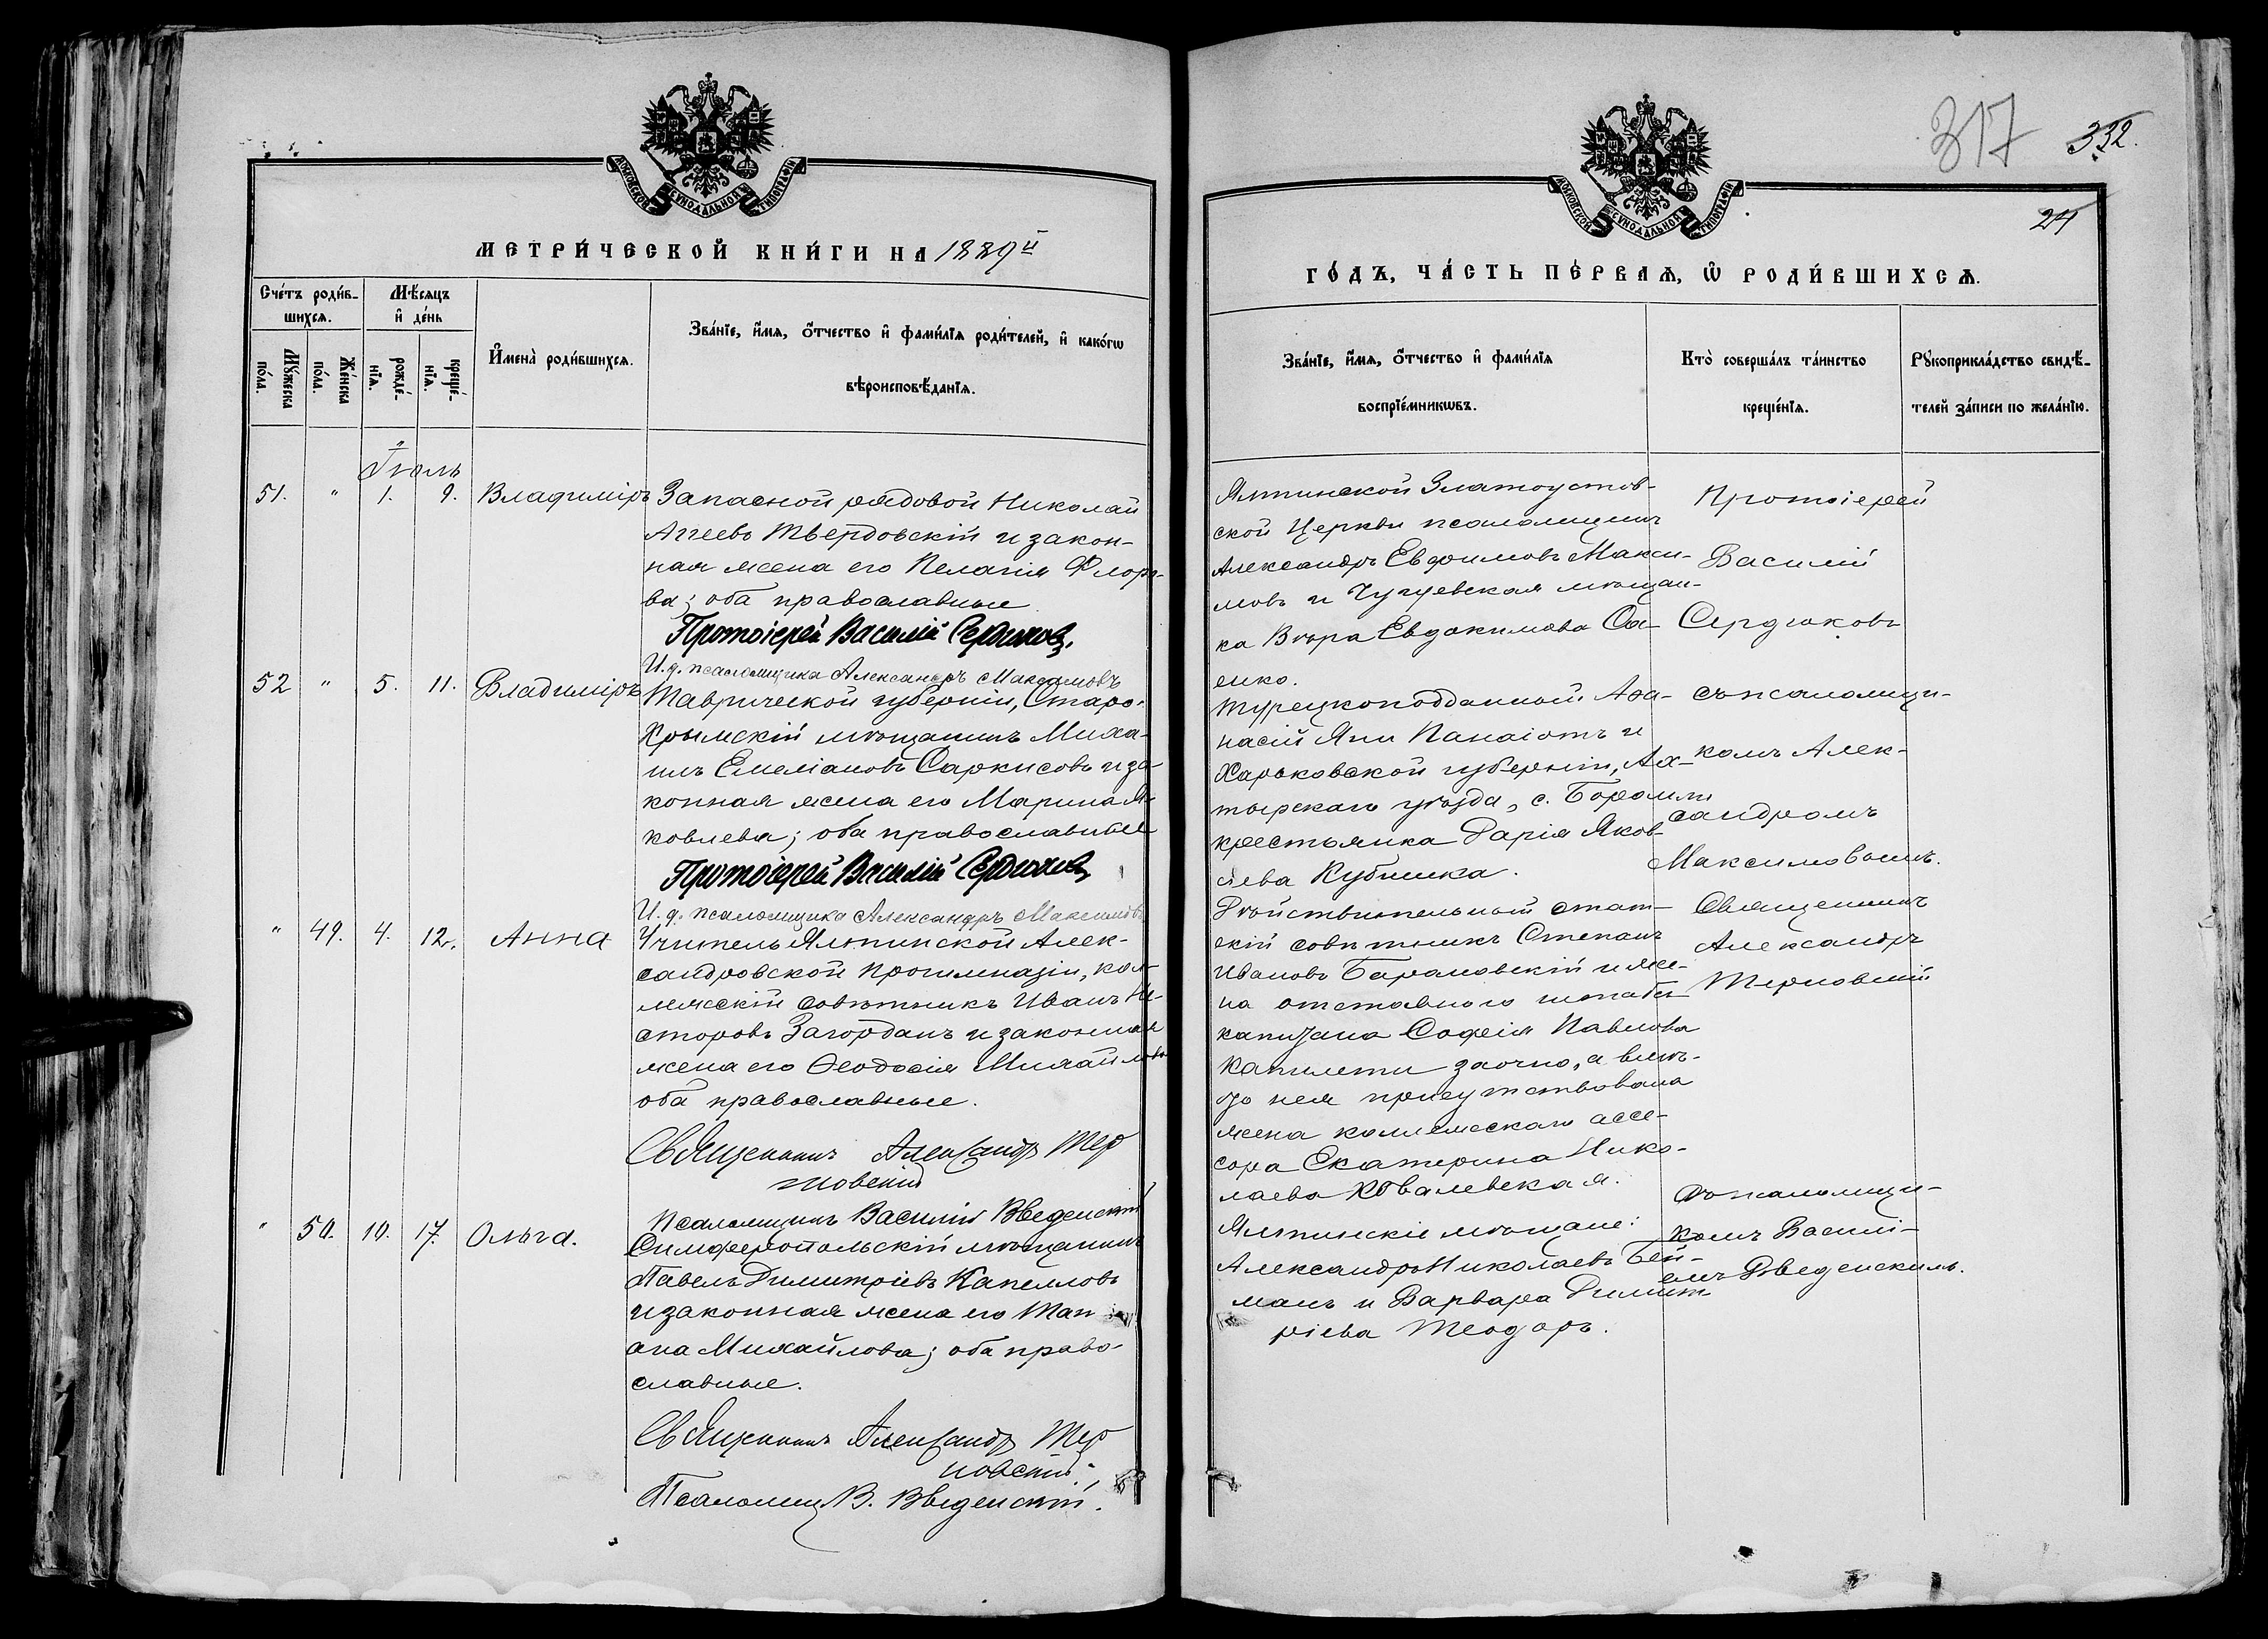 МОСКОВСКОЙ СѴНОДАЛЬНОЙ ТИПОГРАФІИ
МЕТРИ́ЧЕСКОЙ КНИ́ГИ НА 1889й
Сче́тъ роди́в-
шихся.
Мѣ́сяцъ
и҆ де́нь
Мꙋ́жеска
по́ла.
Же́нска
по́ла.
рожде́-
нїѧ.
креще́-
нїѧ.
И҆мена̀ роди́вшихсѧ.
Зва́нїе, и҆́мѧ, ѻ҆́тчество и҆ фами́лїѧ роди́телей, и҆ како́гѡ
вѣроисповѣ́данїѧ.
Іюль
51. " 1. 9. Владиміръ
Запасной рядовой Николай
Агеевъ Твердовскій и закон-
ная жена его Пелагія Флоро-
ва; оба православные
Протоіерей Василій Сердюковъ.
И.д. псаломщика Александръ Максимовъ
52 " 5. 11. Владиміръ
Таврической губерніи, Старо-
Крымскій мѣщанинъ Миха-
илъ Емеліановъ Саркисовъ и за-
конная жена его Марина Я-
ковлева; оба православные
Протоіерей Василій Сердюковъ
И.д. псаломщика Александръ Максимовъ
" 49. 4. 12. Анна
Учитель Ялтинской Алек-
сандровской прогимназіи, кол-
лежскій совѣтникъ Иванъ Не-
сторовъ Загорданъ и законная
жена его Ѳеодосія Михайлова
оба православные.
Священникъ Александръ Тер
новскій
Псаломщикъ Василій Введенскій
" 50. 10. 17. Ольга.
Симферопольскій мѣщанинъ
Павелъ Димитріевъ Капелловъ
и законная жена его Тати
ана Михайлова; оба право-
славные.
Священникъ Александръ Тер
новскій.
Псаломщ. В. Введенскій.
317 332.
24
МОСКОВСКОЙ СѴНОДАЛЬНОЙ ТИПОГРАФІИ
ГО́ДЪ, ЧА́СТЬ ПЕ́РВАѦ, Ѡ҆ РОДИ́ВШИХСѦ.
Зва́нїе, и҆́мѧ, ѻ҆́тчество и҆ фами́лїѧ
воспрїе́мникѡвъ.
Кто̀ соверша́лъ та́инство
креще́нїѧ.
Рꙋкоприкла́дство свидѣ́-
телей за́писи по жела́нїю.
Ялтинской Златоустов-
ской Церкви псаломщикъ
Александръ Евфимовъ Макси-
мовъ и Чугуевская мѣщан-
ка Вѣра Евдокимова Са-
енко.
Протоіерей
Василій
Сердюковъ
Турецкоподданный Аѳа-
насій Яни Панаіотъ и
Харьковской губерніи, Ах-
тырскаго уѣзда, с. Боромли
крестьянка Дарія Яков-
лева Кубышка.
съ псаломщи-
комъ Алек-
сандромъ
Максимовымъ.
Дѣйствительный стат-
скій совѣтникъ Степанъ
Ивановъ Барановскій и же-
на отставного штабсъ-
капитана Софія Павлова
Капилети заочно, а вмѣ-
сто нея присутствовала
жена коллежскаго ассе-
сора Екатерина Нико-
лаева Ковалевская.
Священникъ
Александръ
Терновскій
Ялтинскіе мѣщане:
Александръ Николаевъ Бей-
манъ и Варвара Димит
ріева Теодоръ.
съ псаломщи-
комъ Василі-
емъ Введенскимъ.